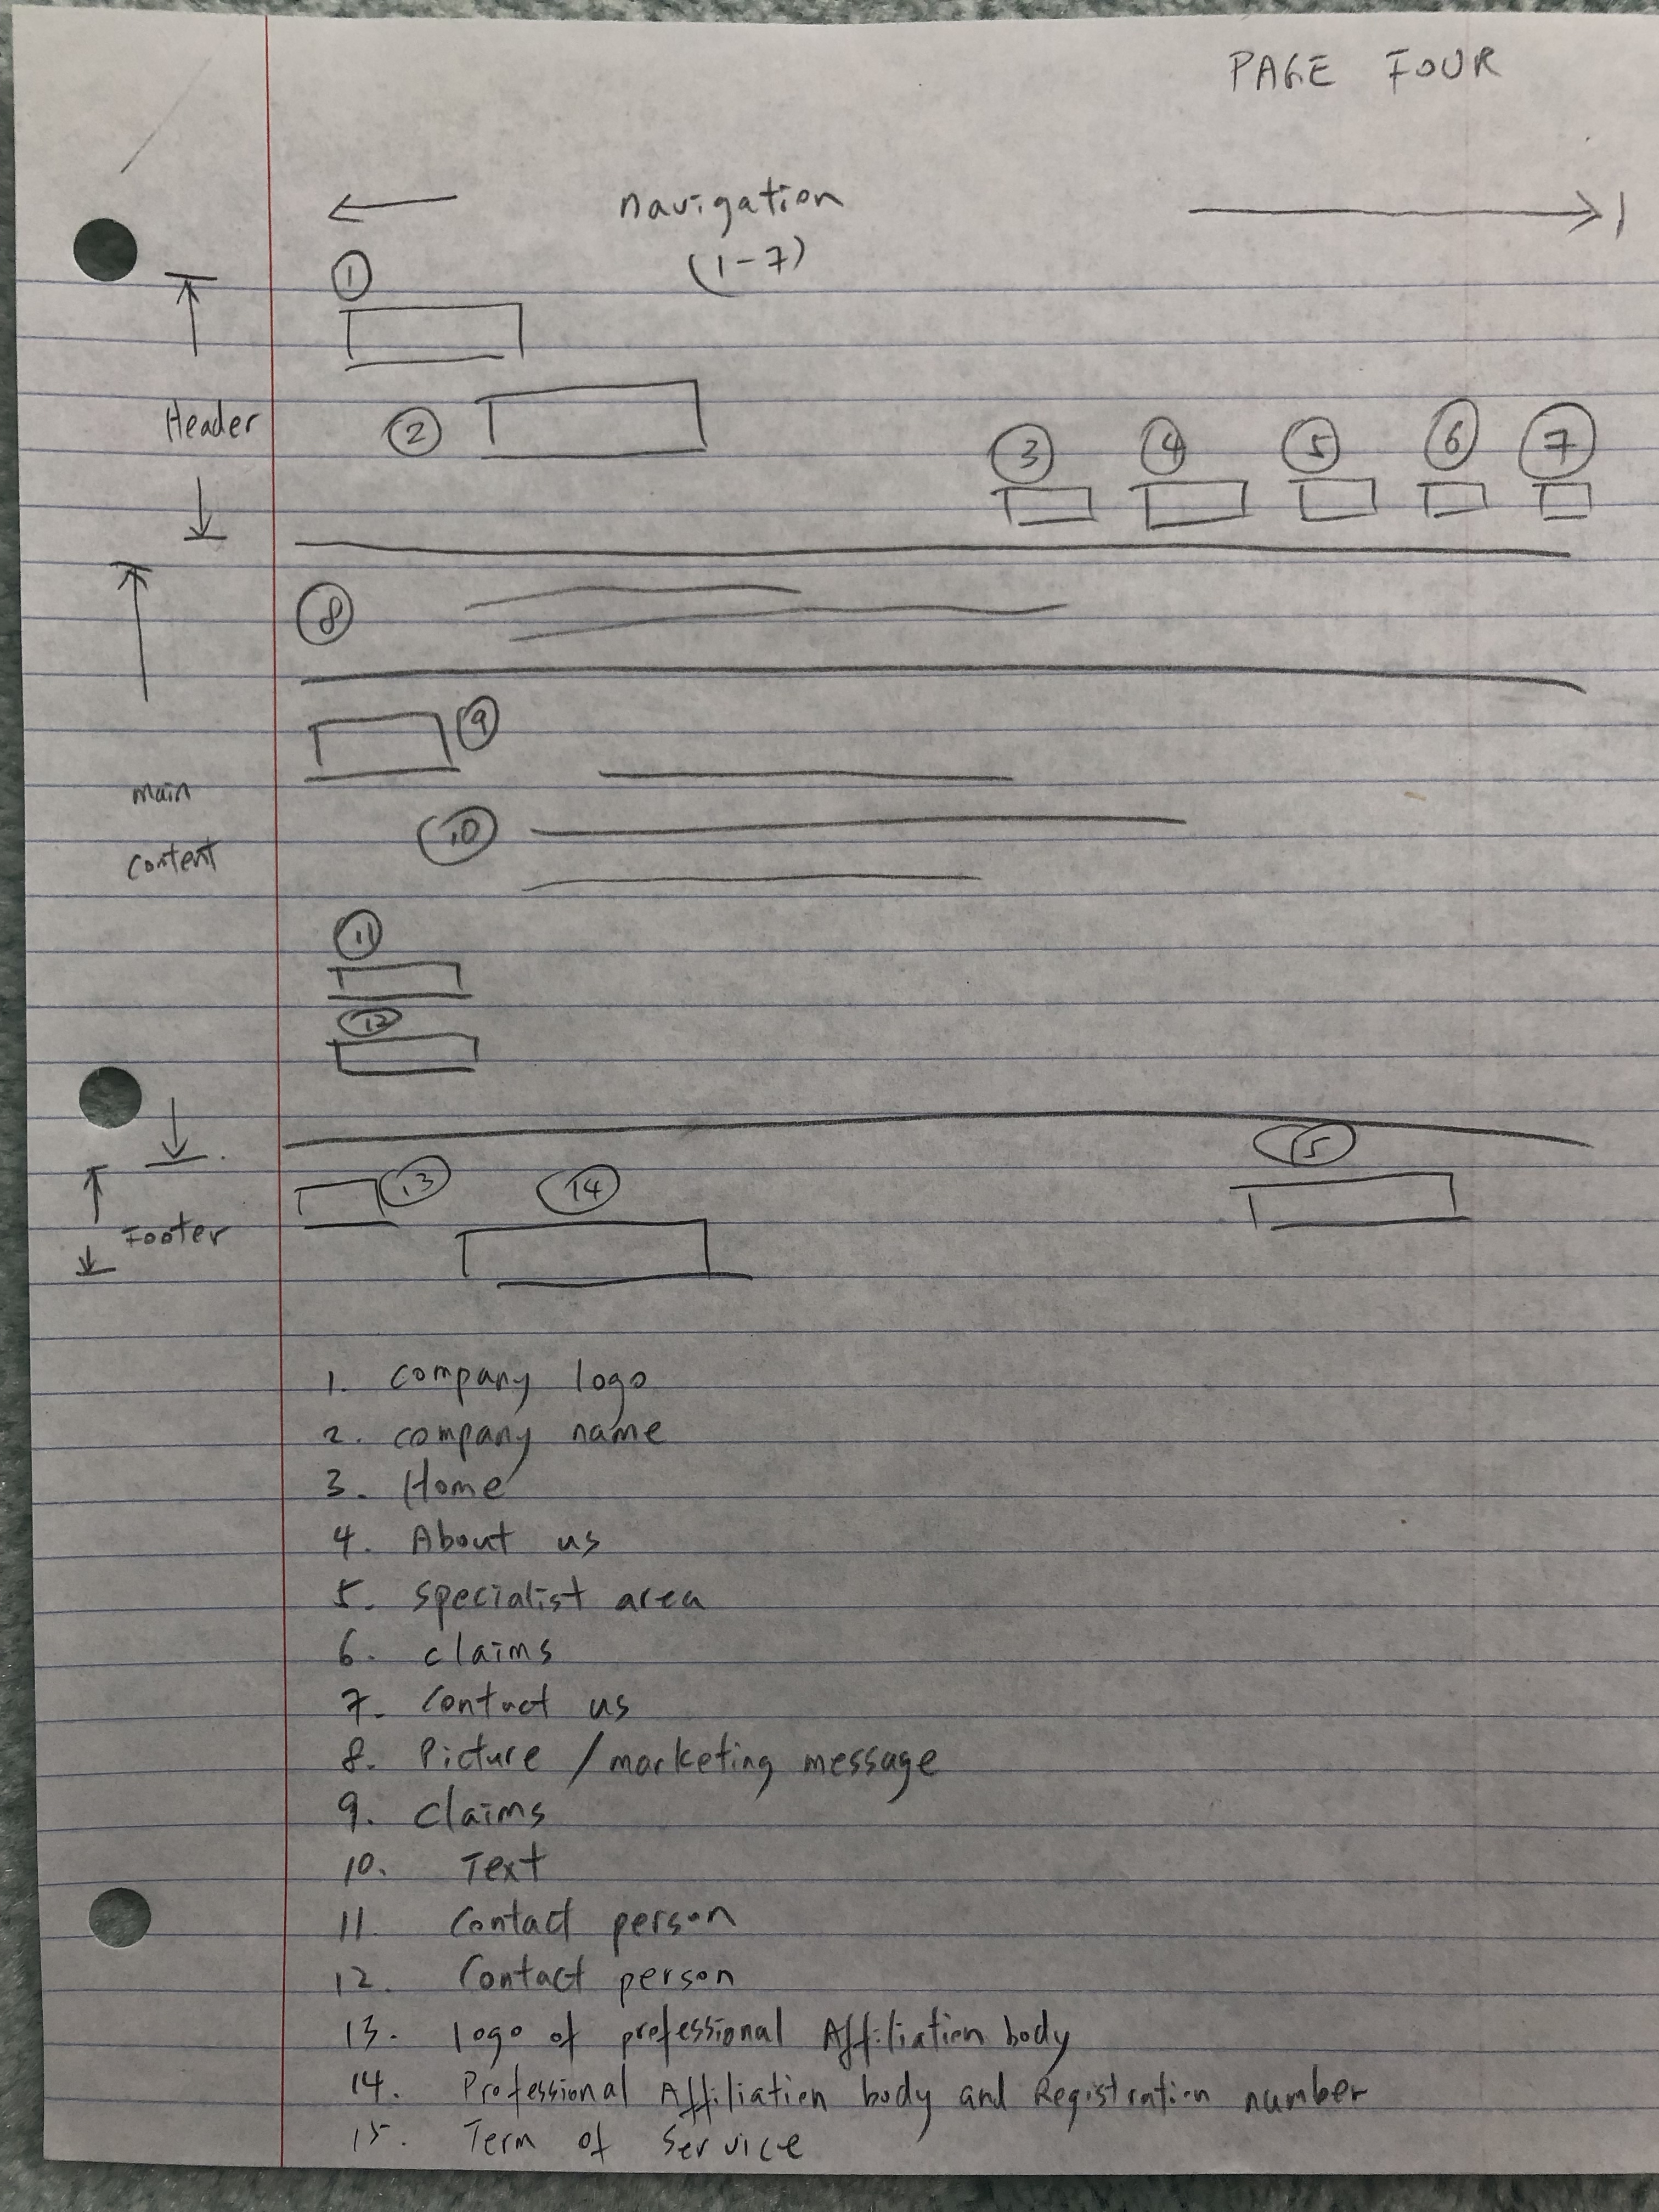 PAGE FOUR
navigation
(1-7)
1
Header
2
3 4 5 6 7
8
9
main
10
content
11
12
15
13 14
Footer
1. company logo
2. company name
3. Home
4. About us
5. specialist area
6. claims
7. Contact us
8. Picture / marketing message
9. claims
10. Text
11. Contact person
12. Contact person
13. logo of professional Affiliation body
14. Professional Affiliation body and Registration number
15. Term of Service